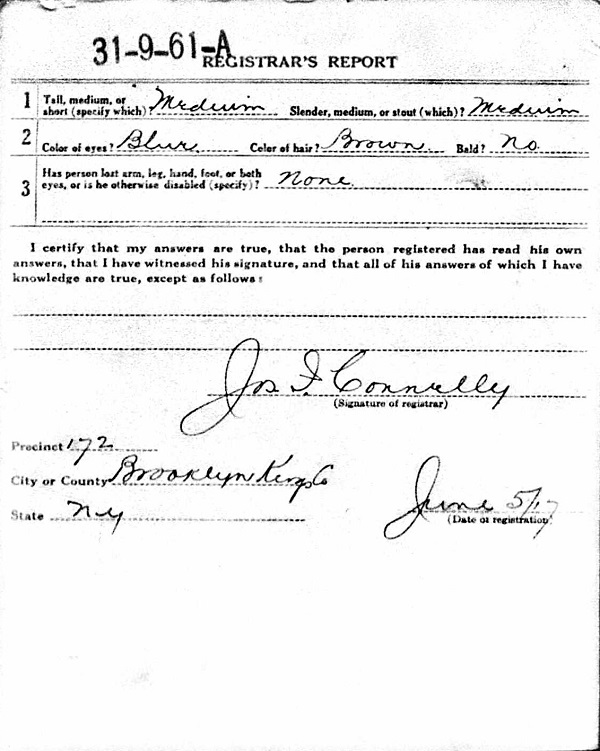 31-9-61-A
REGISTRAR'S REPORT
1 Tall, medium, or short (specify which)? Medium Slender, medium, or stout (which)? Medium
2 Color of eyes? Blue Color of hair? Brown Bald? No
3 Has person lost arm, leg, hand, foot, or both eyes, or is he otherwise disabled (specify)? None
I certify that my answers are true, that the person registered has read his own
answers, that I have witnessed his signature, and that all of his answers of which I have
knowledge are true, except as follows:
Jos F Connelly
(Signature of registrar)
Precinct 172
City or County Brooklyn Kings Co
State NY
June 5/17
(Date of registration)